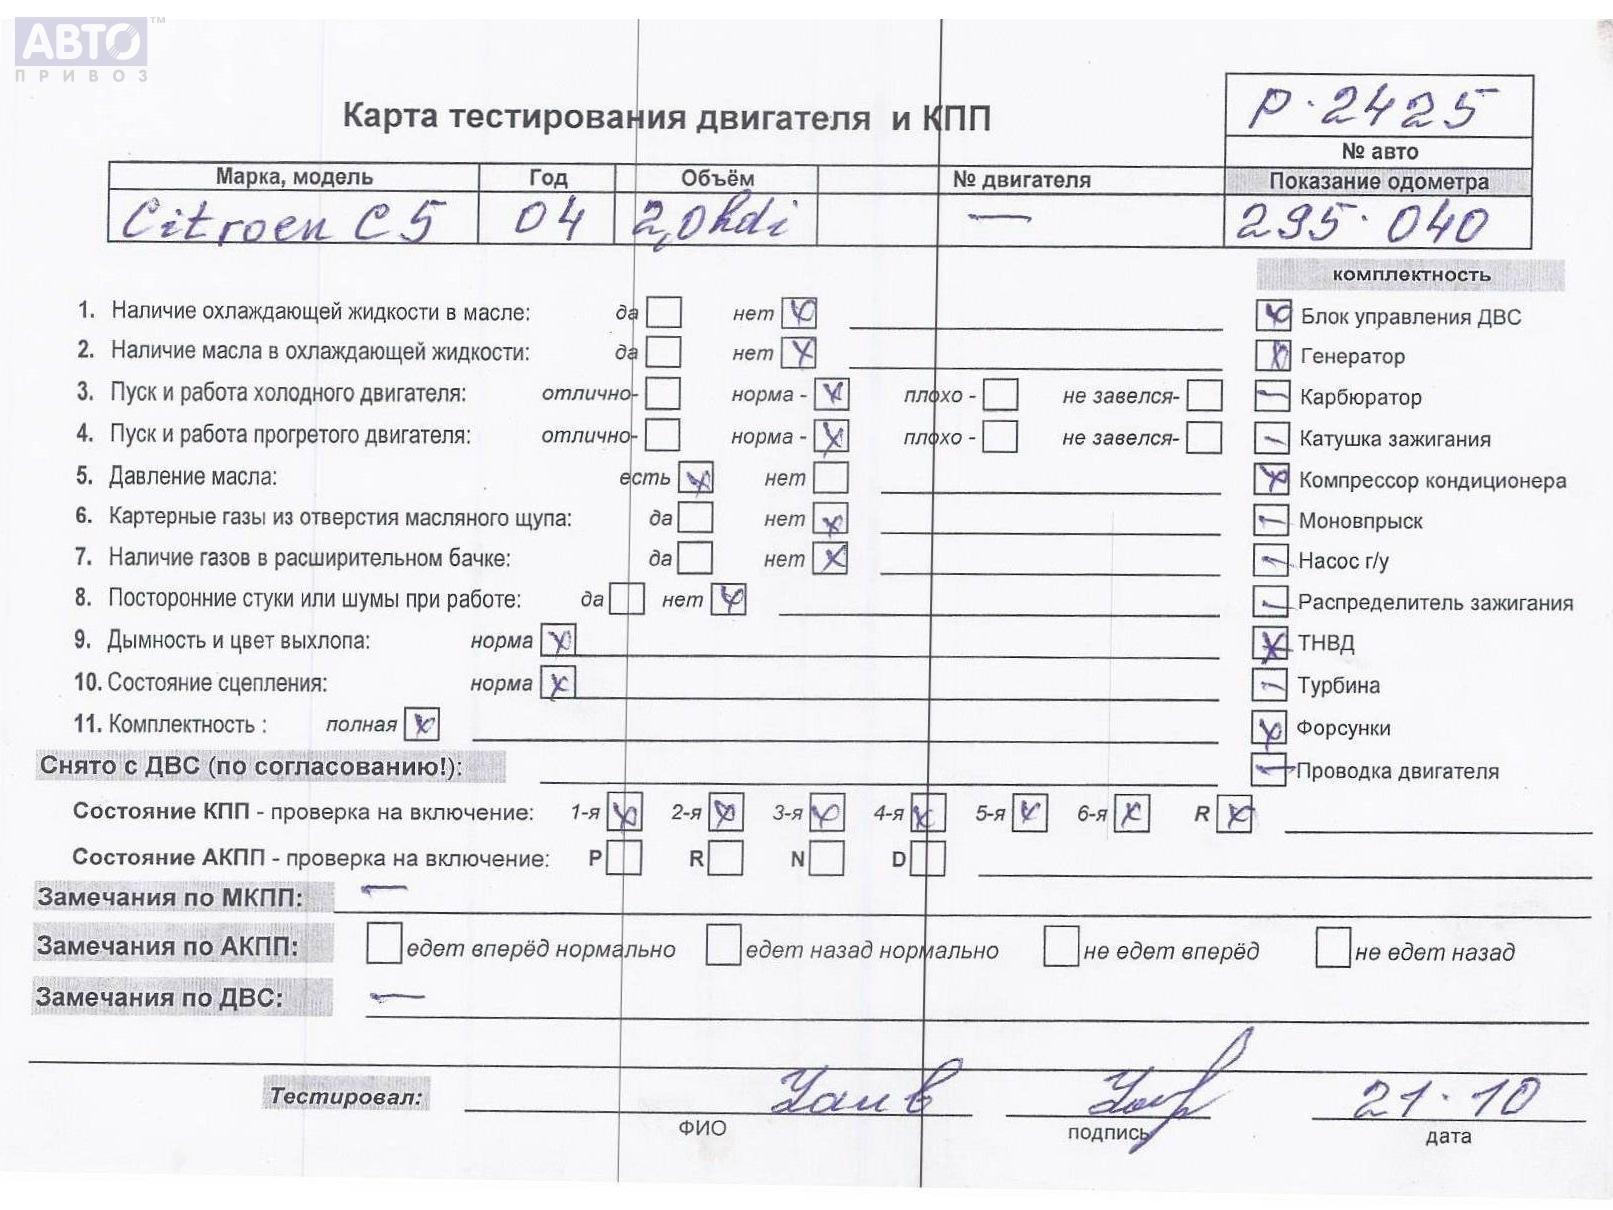 АВТО ™
ПРИВОЗ
Карта тестирования двигателя и КПП
Р-2425
№ авто
Марка, модель Год Объём № двигателя Показание одометра
Citroen C5 04 2,0hdi — 295.040
комплектность
1. Наличие охлаждающей жидкости в масле: да нет
2. Наличие масла в охлаждающей жидкости: да нет
3. Пуск и работа холодного двигателя: отлично- норма - плохо - не завелся-
4. Пуск и работа прогретого двигателя: отлично- норма - плохо - не завелся-
5. Давление масла: есть нет
6. Картерные газы из отверстия масляного щупа: да нет
7. Наличие газов в расширительном бачке: да нет
8. Посторонние стуки или шумы при работе: да нет
9. Дымность и цвет выхлопа: норма
10. Состояние сцепления: норма
11. Комплектность : полная
Блок управления ДВС
Генератор
Карбюратор
Катушка зажигания
Компрессор кондиционера
Моновпрыск
Насос г/у
Распределитель зажигания
ТНВД
Турбина
Форсунки
Проводка двигателя
Снято с ДВС (по согласованию!):
Состояние КПП - проверка на включение: 1-я 2-я 3-я 4-я 5-я 6-я R
Состояние АКПП - проверка на включение: P R N D
Замечания по МКПП: —
Замечания по АКПП: едет вперёд нормально едет назад нормально не едет вперёд не едет назад
Замечания по ДВС: —
Тестировал: 21.10
ФИО подпись дата